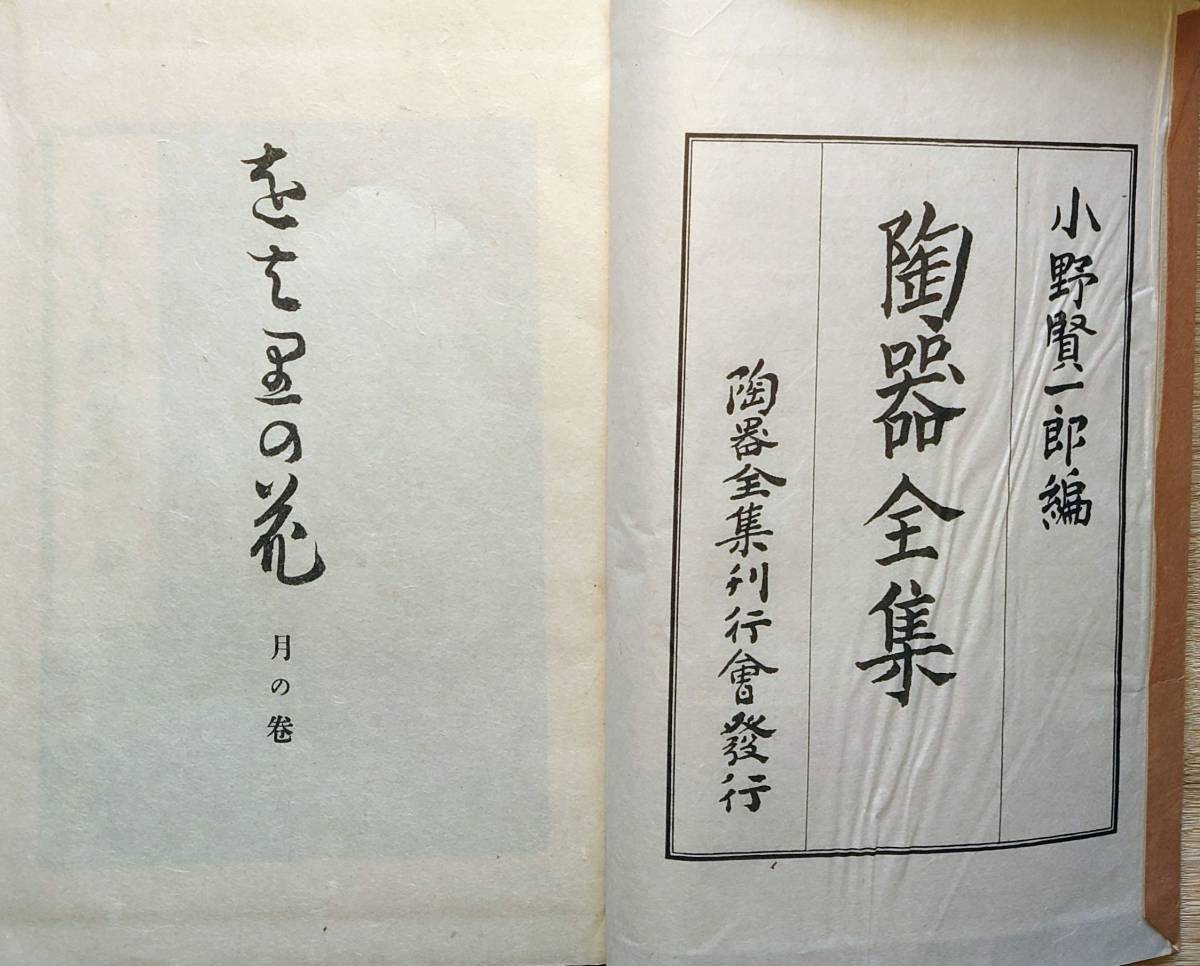 小野賢一郎編
陶器全集
陶器全集刊行會發行
をは里の花
月の卷